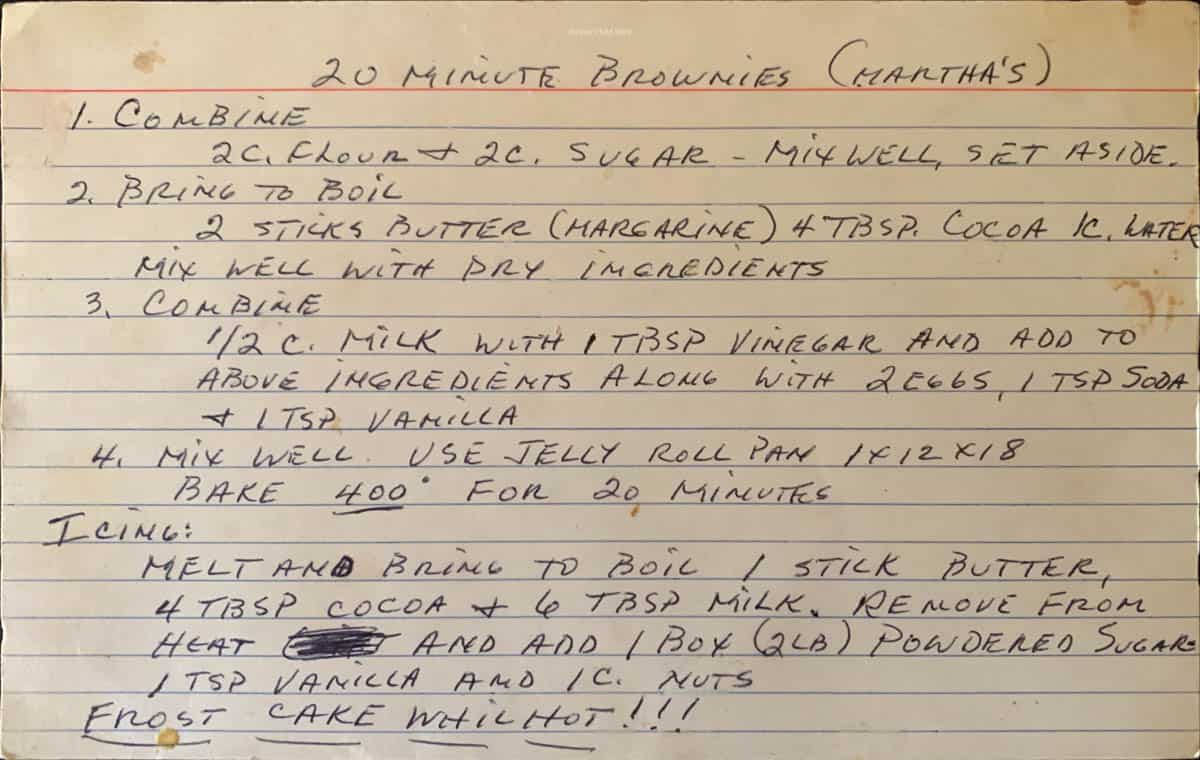 20 MINUTE BROWNIES (MARTHA'S)
1. COMBINE
2C. FLOUR + 2C. SUGAR - MIX WELL, SET ASIDE.
2. BRING TO BOIL
2 STICKS BUTTER (MARGARINE) 4 TBSP. COCOA 1C. WATER
MIX WELL WITH DRY INGREDIENTS
3. COMBINE
1/2 C. MILK WITH 1 TBSP VINEGAR AND ADD TO
ABOVE INGREDIENTS ALONG WITH 2 EGGS, 1 TSP SODA
+ 1 TSP VANILLA
4. MIX WELL. USE JELLY ROLL PAN 1X12X18
BAKE 400° FOR 20 MINUTES
ICING:
MELT AND BRING TO BOIL 1 STICK BUTTER,
4 TBSP COCOA + 6 TBSP MILK. REMOVE FROM
HEAT AND ADD 1 BOX (2LB) POWDERED SUGAR
1 TSP VANILLA AND 1C. NUTS
FROST CAKE WHIL HOT!!!